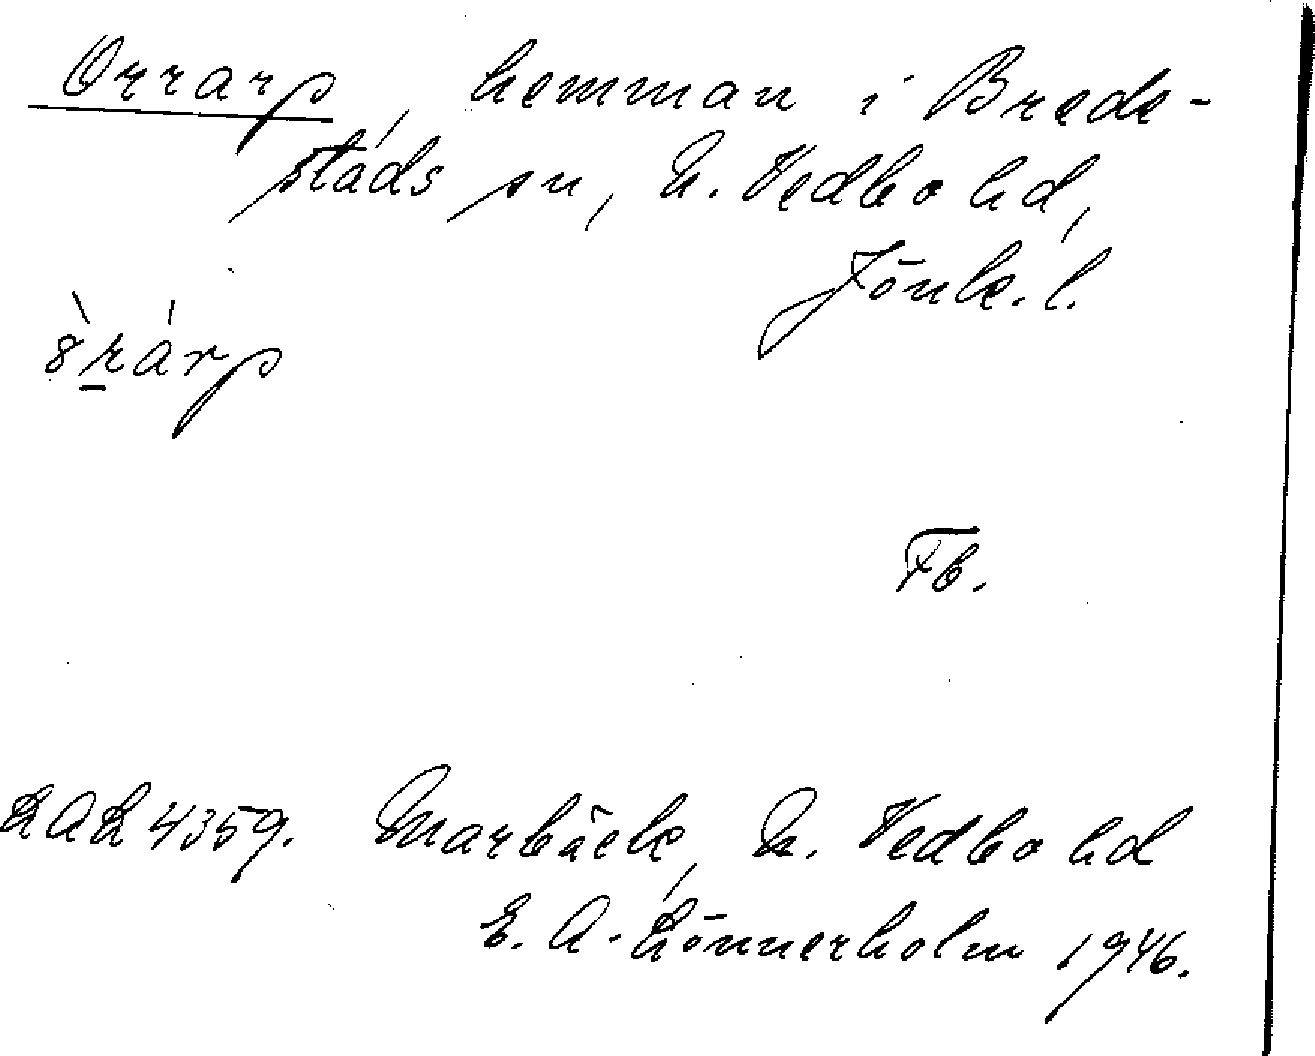 Orrarp, hemman i Brede-
stads sn, N. Vedbo hd,
Jönk. l.
8̀rárp
Fb.
LAL 4359. Marbäck, N. Vedbo hd
E. A. Lönnerholm 1946.